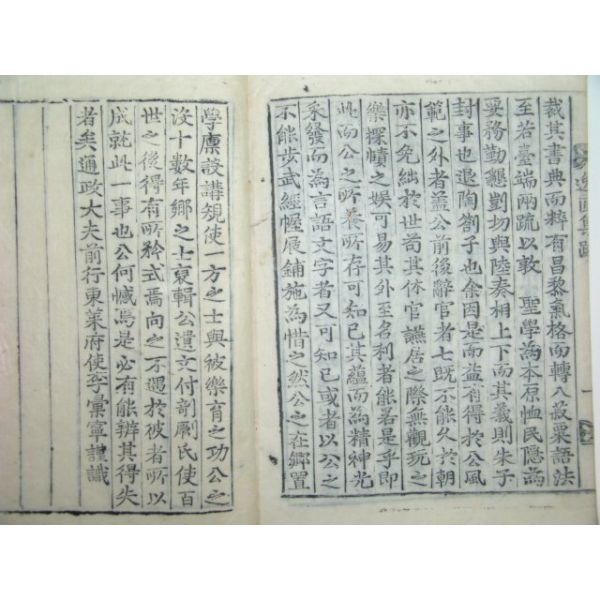 逸圃集跋
一
裁其書典而粹有昌黎氣格而轉入菽粟語法
至若臺端兩疏以敦 聖學為本原恤民隱為
要務勤懇剴切與陸奏相上下而其義則朱子
封事也退陶劄子也余因是而益有得於公風
範之外者蓋公前後辭官者七既不能久於朝
亦不免絀於世苟其休官讌居之際無觀玩之
樂探賾之娛可易其外至名利者能若是乎即
此而公之所養所存可知已其蘊而為精神光
采發而為言語文字者又可知已或者以公之
不能步武經幄展鋪施為惜之然公之在鄉置
學廩設講規使一方之士與被樂育之功公之
沒十數年鄉之士裒輯公遺文付剞劂氏使百
世之後得有所矜式焉向之不遇於彼者所以
成就此一事也公何憾焉是必有能辨其得失
者矣通政大夫前行東萊府使李彙寧謹識